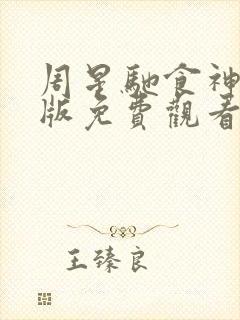 周星馳食神
版免費觀看
王臻良